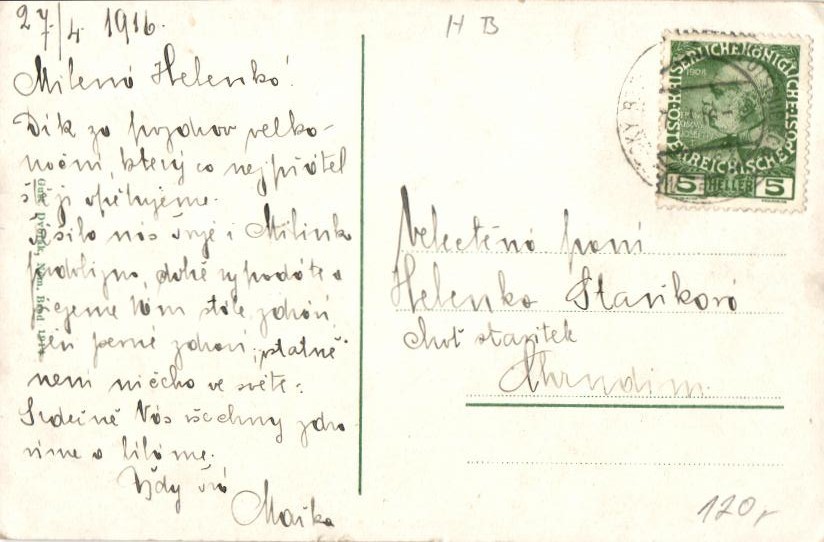 27/4 1916.
Milená Helenko!
Dík za pozdrav velko-
noční, který co nejpřátel
ji opětujeme.
nás Tvá i Milinka
podobizna, dobře vypadáte a
přejeme Vám stále zdraví,
jen pevné zdraví, ostatně
není ničeho ve světě.
Srdečně Vás všechny zdra-
víme a líbáme.
Vždy Tvá
Mařka
H B
KAISERLICHE KÖNIGLICHE
ÖSTERREICHISCHE POST
1908
5 HELLER 5
Velectěná paní
Helenka Staříková
choť
Chrudim.
120,-